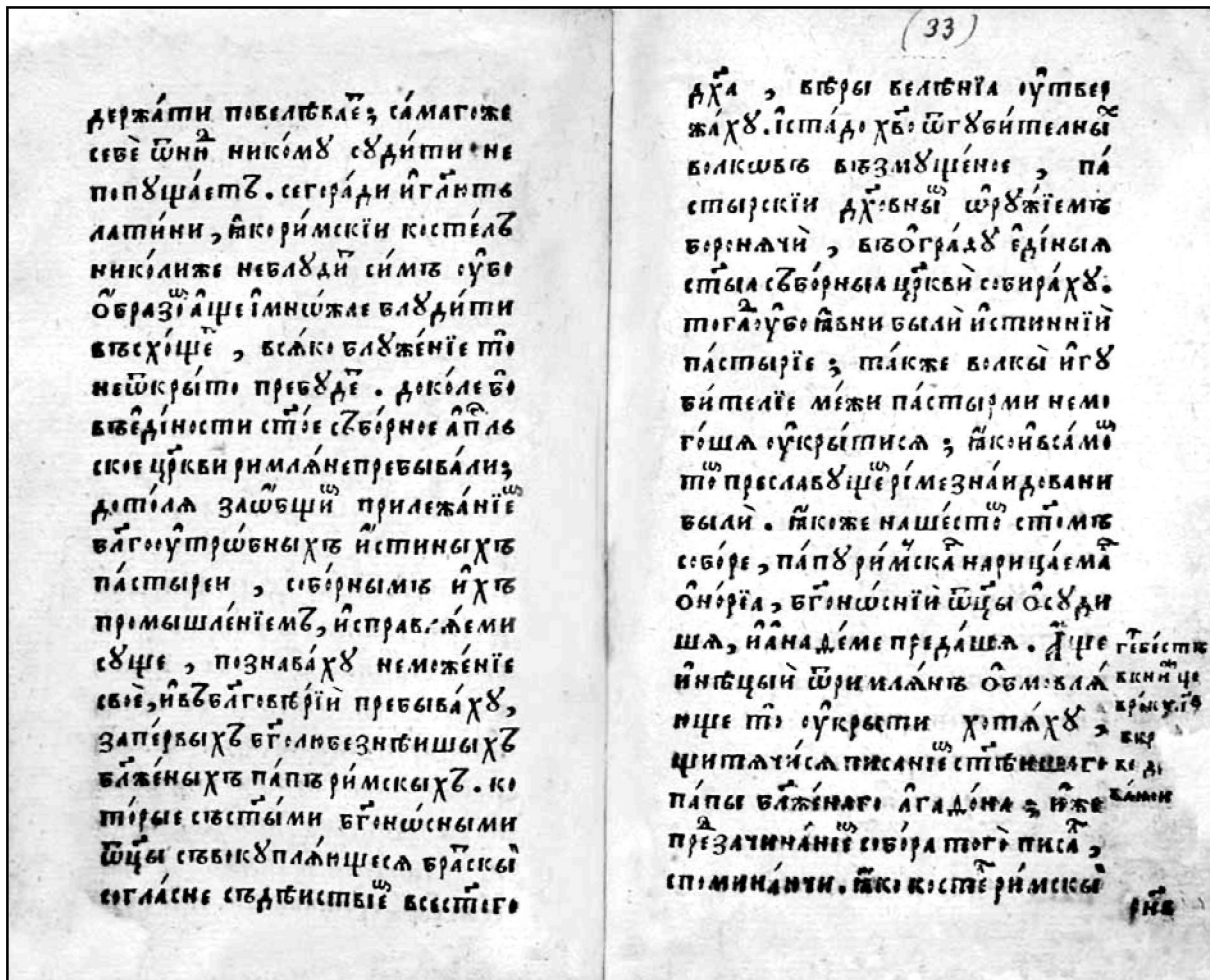 держа́ти повелѣваеⷮ; са́магоже
себѐ ѿни́ⷣ нико́му суди́ти не
попуща́етъ. сегора́ди и҆гл҃ютъ
лати́ни, ꙗ҆́ко ри́мскїи косте́лъ
нико́лиже неблуди́ⷮ си́мъ оу҆́бо
о҆́бразоⷨ а҆́ще і҆мно́жае блуди́ти
въсхо́щеⷮ, вся́ко блуже́нїе то̀
неѿкры́то пребу́деⷮ. доко́ле бо
въеди́ности ст҃ое съ́борное а҆пⷭ҇ль
ское цр҃кви римля́не пребыва́ли;
дото́лѧ заѡ҆́бщиⷨ прилежа́нїеⷨ
бл҃гооу҆тро́бныхъ и҆́стиныхъ
па́стыреи, собо́рнымъ и҆́хъ
промышле́нїемъ, и҆справлѧ́еми
су́ще, познава́ху неможе́нїе
своѐ, и҆въбл҃говѣ́рїй пребыва́ху,
запе́рвыхъ бг҃олюбезнѣ́ишыхъ
бл҃же́ныхъ па́пъ ри́мскыхъ. ко
то́рые съст҃ы́ми бг҃оно́сными
ѿц҃ы съвокуплѧ́ющесѧ бра́ⷮскы
согла́сне съдѣ́йствїеⷨ всест҃о́го
(33)
дх҃а, вѣ́ры велѣ́нїа оу҆твер
жа́ху. і҆ста́до хв҃о ѿгуби́телныⷯ
волко́въ възмуще́ное, па́
стырскїи дх҃о́вныⷨ ѡ҆ру́жїемъ
боронѧчѝ, въо҆гра́ду е҆ди́ныѧ
ст҃ыа съ́борныа цр҃кви собира́ху.
тогда̀ оу҆́бо ꙗ҆́вни былѝ и҆́стиннїй
па́стырїе; та́кже волкы̀ и҆гу
би́телїе ме́жи па́стырми немо
го́шѧ оу҆кры́тисѧ; ꙗ҆́ко и҆вса́моⷨ
то̀ преславу́щеⷨ ри́ме зна́йдовани
былѝ. ꙗ҆́коже наше́стоⷨ ст҃о́мъ
собо́ре, па́пу ри́мскаⷢ нарица́емаⷢ
о҆но́рїа, бг҃оно́снїй ѿц҃ы о҆суди
шѧ, и҆а҆на де́ме преда́шеѧ. А҆́ще
и҆нѣ́цый ѿримлѧ́нъ о҆бмовлѧ́
юще то̀ оу҆кры́ти хотѧ́ху,
щитѧ́чисѧ писа́нїеⷨ ст҃ѣ́ишаго
па́пы бл҃же́наго а҆гадо́на; и҆́же
преⷣзачина́нїеⷨ собо́ра того̀ писа́ⷧ,
спомина́ючи. ꙗ҆́ко косте́ⷧ ри́мскы
рнв